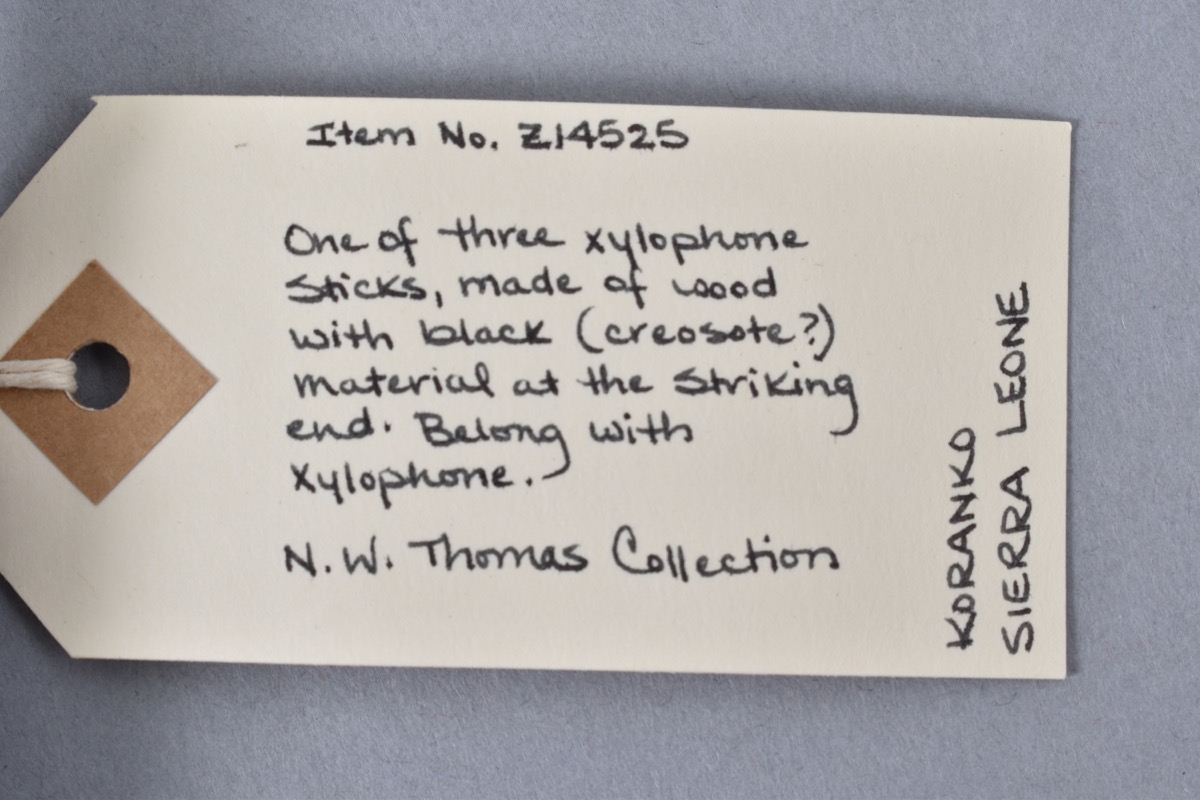 Item No. Z14525
One of three xylophone
sticks, made of wood
with black (creosote?)
material at the striking
end. Belong with
xylophone.
N.W. Thomas Collection
KORANKO
SIERRA LEONE